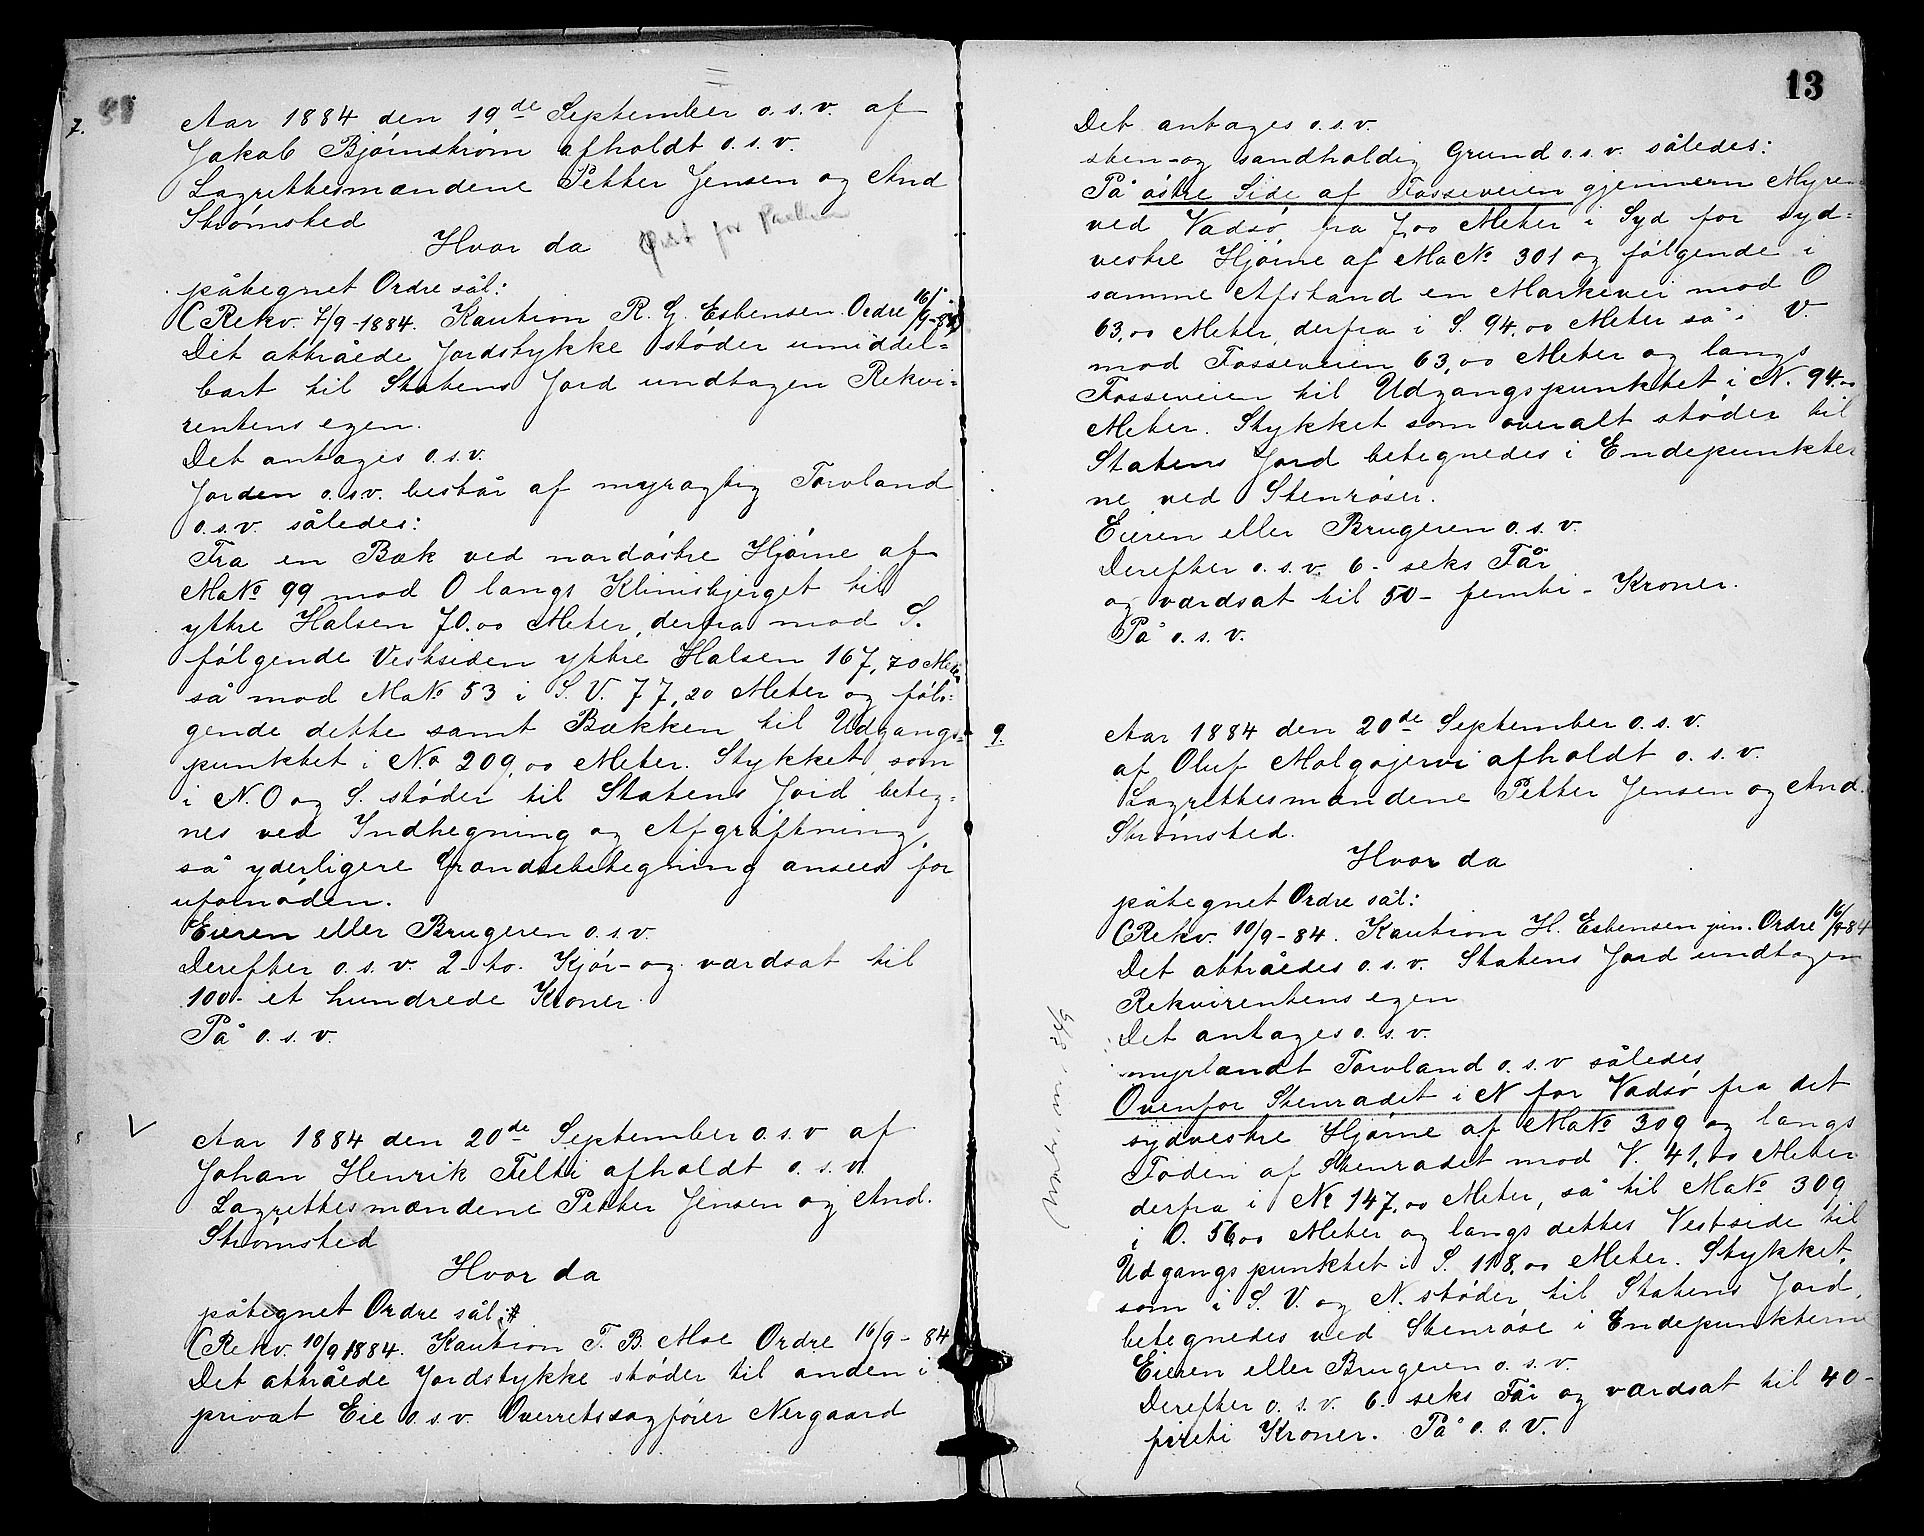 7.
Aar 1884 den 19de September o.s.v. af
Jakob Bjørnstrøm afholdt o.s.v.
Lagrettesmændene Petter Jensen og And
Strømsted
Hvor da
påtegnet Ordre sål:
(Rekv. 7/9-1884. Kaution R. G. Esbensen. Ordre 16/9-84)
Det attråede Jordstykke støder umiddel=
bart til Statens Jord undtagen Rekvi=
rentens egen.
Det antages o.s.v.
Jorden o.s.v. består af myragtig Torvland
o.s.v. således:
Fra en Bæk ved nordøstre Hjørne af
Ma№ 99 mod O langs Klimisbjerget til
yttre Halsen 70.00 Meter, derfra mod S.
følgende Vestsiden yttre Halsen 167,70 Meter
så mod Ma№ 53 i S.V. 77,20 Meter og føl=
gende dette samt Bækken til Udgangs=
punktet i No 209,00 Meter. Stykket, som
i N.O og S. støder til Statens Jord beteg=
nes ved Indhegning og Afgrøftning,
så yderligere Grændsebetegning ansees for
ufornøden.
Eieren eller Brugeren o.s.v.
Derefter o.s.v. 2-to. Kjør- og værdsat til
100- et hundrede Kroner.
På o.s.v.
8
Aar 1884 den 20de September o.s.v af
Johan Henrik Felti afholdt o.s.v.
Lagrettesmændene Petter Jensen og And.
Strømsted
Hvor da
påtegnet Ordre sål:
(Rekv. 10/9 1884. Kaution T. B. Moe Ordre 16/9-84
Det attråede Jordstykke støder til anden i
privat Eie o.s.v. Overretssagfører Nergaard
13
Det antages o.s.v.
sten- og sandholdig Grund o.s.v. således:
På østre Side af Fosseveien gjennem Myren
ved Vadsø fra 7,00 Meter i Syd for syd=
vestre Hjørne af Ma№ 301 og følgende i
samme Afstand en Markevei mod O
63,00 Meter, derfra i S. 94,00 Meter så i V.
mod Fosseveien 63,00 Meter og langs
Fosseveien til Udgangspunktet i N. 94,00
Meter. Stykket som overalt støder til
Statens Jord betegnedes i Endepunkter
ne ved Stenrøser.
Eieren eller Brugeren o.s.v.
Derefter o.s.v. 6- seks Får
og værdsat til 50- femti- Kroner.
På o.s.v.
9.
Aar 1884 den 20de September o.s.v.
af Oluf Molgojervi afholdt o.s.v.
Lagrettesmændene Petter Jensen og And.
Strømsted.
Hvor da
påtegnet Ordre sål:
(Rekv. 10/9-84. Kaution H. Esbensen jun. Ordre 16/9-84
Det attråedes o.s.v. Statens Jord undtagen
Rekvirentens egen
Det antages o.s.v.
myrlændt Torvland o.s.v således
Ovenfor Stenradet i N for Vadsø fra det
sydvestre Hjørne af Ma№ 309 og langs
Foden af Stenradet mod V. 41,00 Meter
derfra i N 147,00 Meter, så til Ma№ 309
i O. 56,00 Meter og langs dettes Vestside til
Udgangspunktet i S. 118,00 Meter. Stykket,
som i S. V. og N. støder til Statens Jord,
betegnedes ved Stenrøse i Endepunkterne
Eieren eller Brugeren o.s.v.
Derefter o.s.v. 6. seks Får og værdsat til 40-
fireti Kroner. På o.s.v.